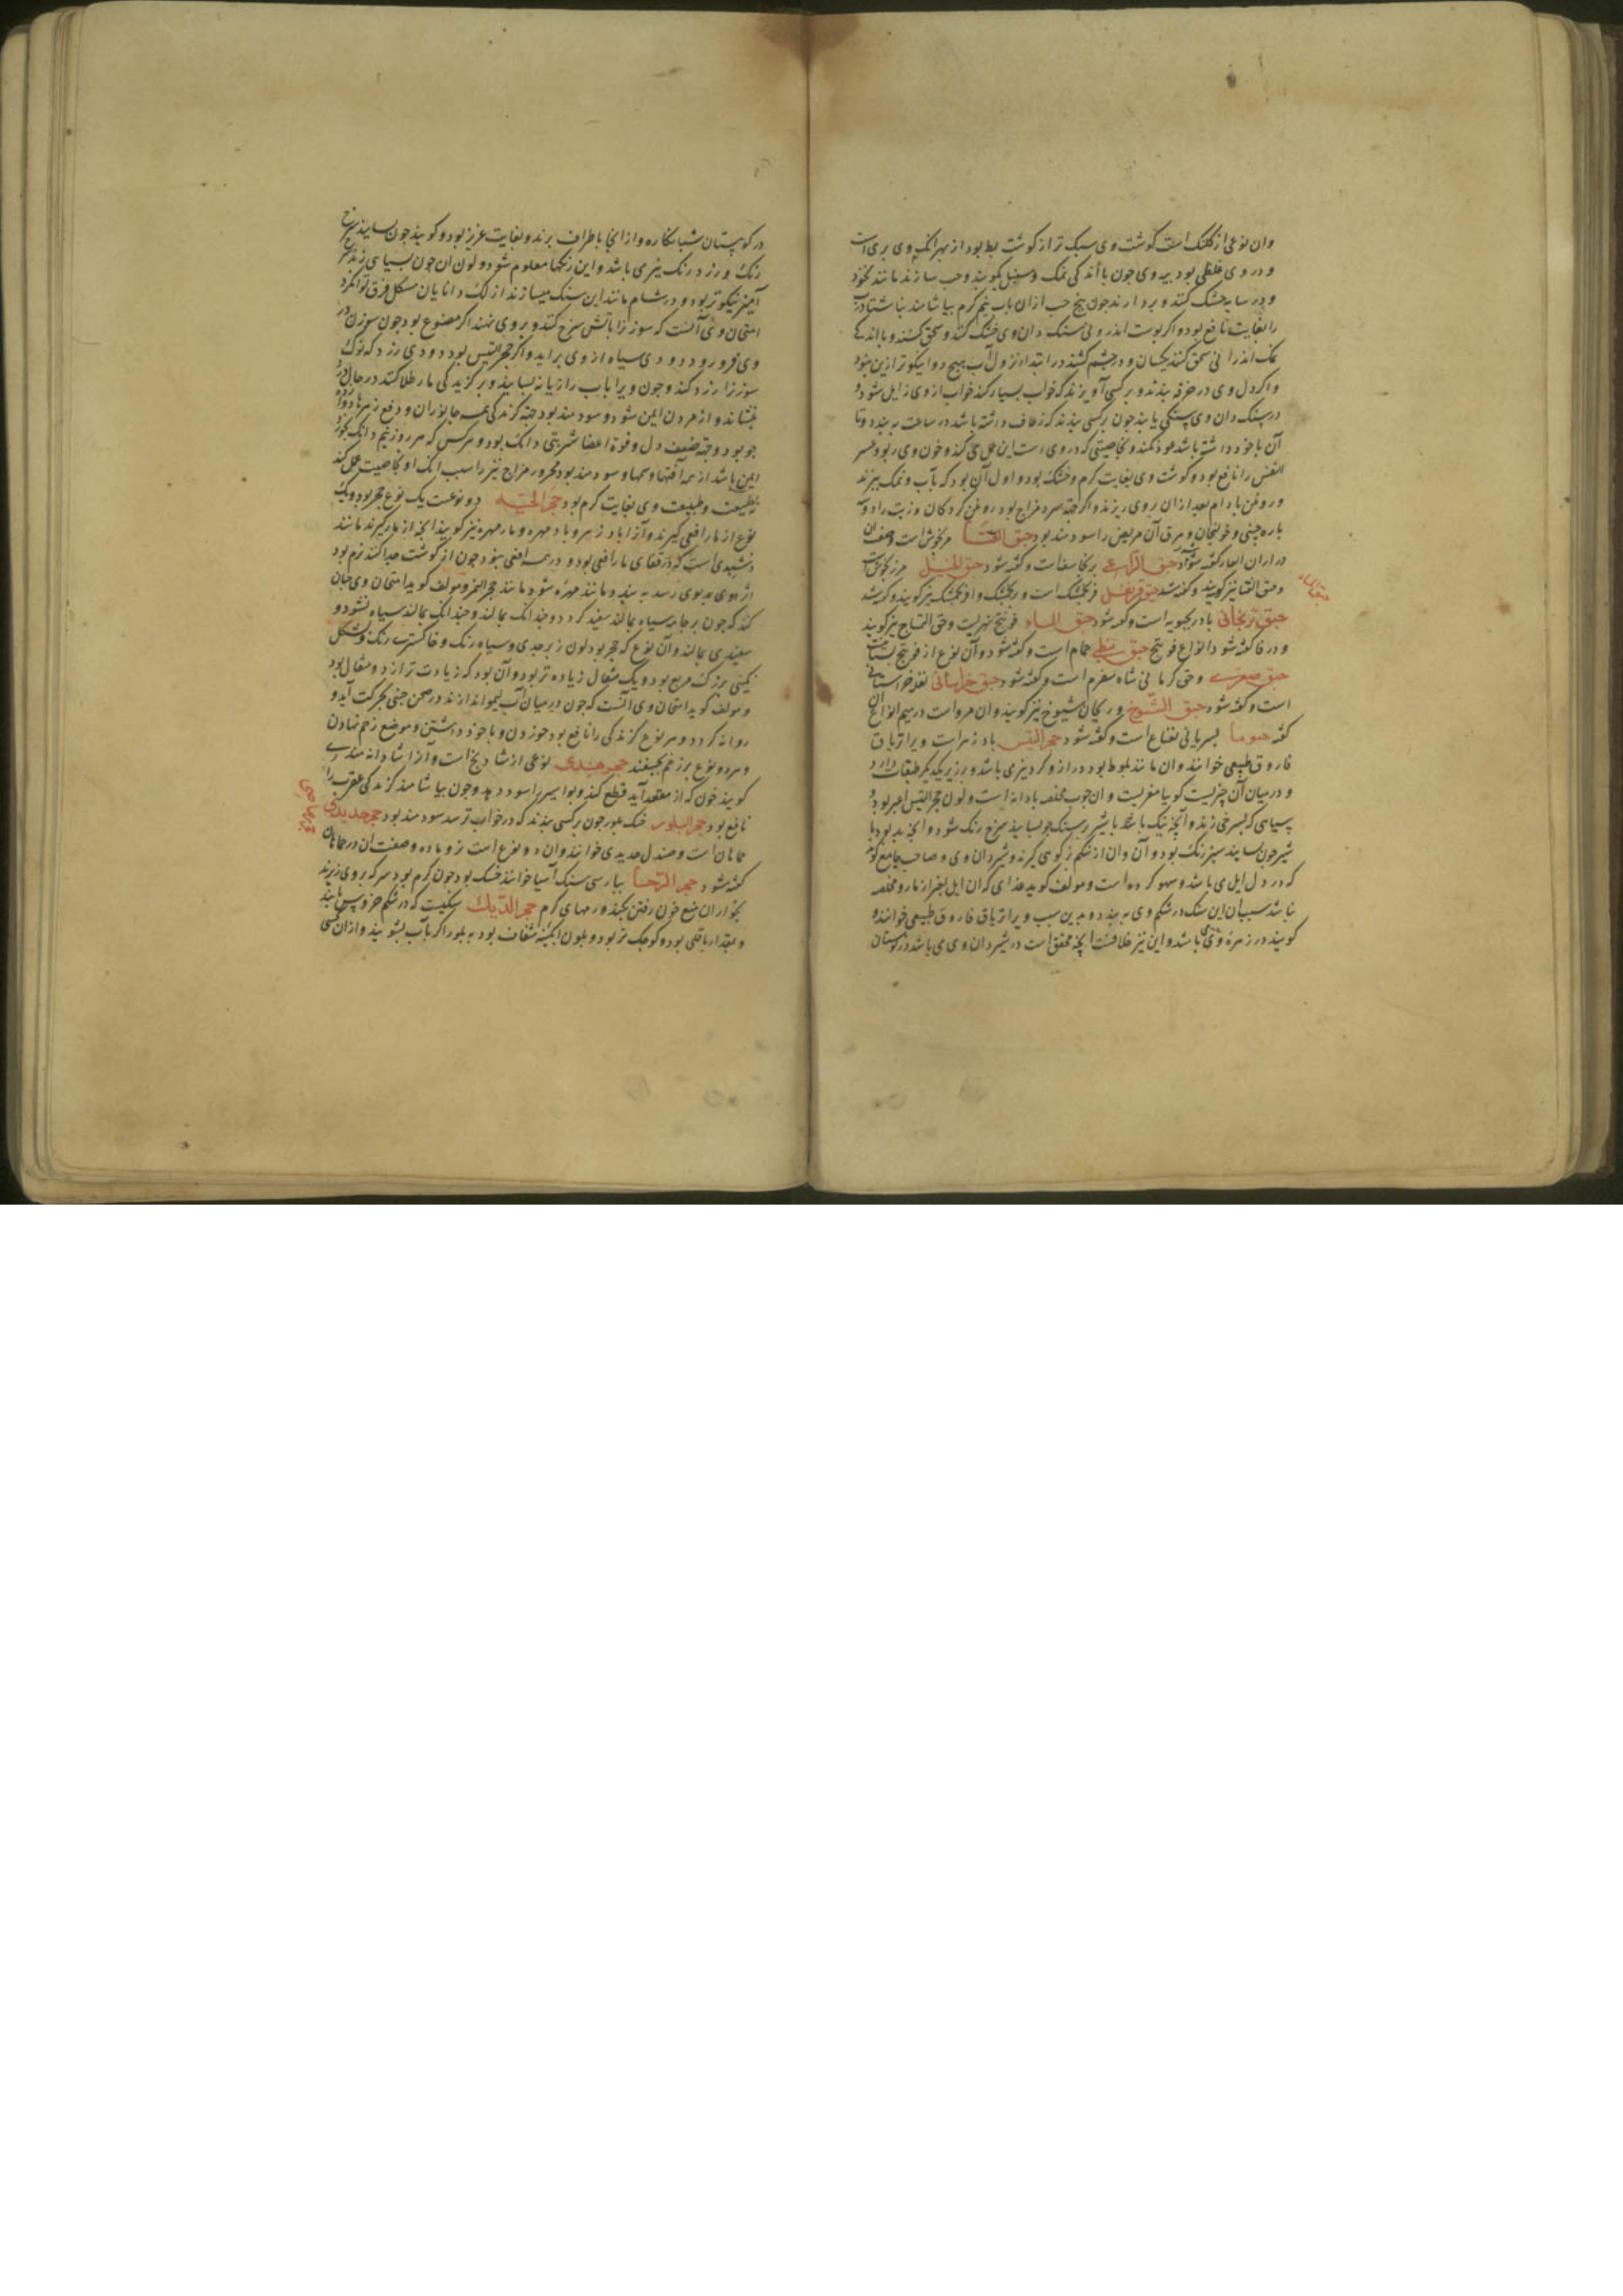 وان نوعی از کلنک است گوشت وی سبک تر از گوشت بط بود از بهر آنک وی بری است
و در وی غلظی بود پیه وی جون با اندکی نمک و سنبل بکوبند و حب سازند مانند نخود
و در سایه خشک کنند و بردارند جون پنج حب ازان باب نیم گرم بیاشامند بناشتا
را بغایت نافع بود و اگر پوست اندرونی سنک دان وی خشک کنند و سحق کنند و با اندکی
نمک اندرانی سحق کنند یکسان و در جشم کشند در ابتدا نزول آب هیچ دوا نیکوتر ازین نبود
و اگر دل وی در خرقه بندند و بر کسی آویزند که خواب بسیار کند خواب از وی زایل شود و
در سنک دان وی سنکی یابند جون بر کسی بندند که رعاف داشته باشد در ساعت ببندد و تا
آن با خود داشته باشد عود نکند و بخاصیتی که در وی است این عمل می کند و خون وی ربو و عسر
النفس را نافع بود و گوشت وی بغایت گرم و خشک بود و اولی آن بود که بآب و نمک بپزند
و روغن بادام بعد ازان بر وی ریزند و اگر جهة سرد مزاج بود روغن گردکان و زیت و
پاره جینی و خولنجان و مرق آن مریض را سودمند بود حبق القثا مرزنکوش است و
گفته شود حبق الراعی برنجاسف است و گفته شود حبق الفیل مرزنجوش است
و حبق القثا نیز گویند و گفته شد حبق قرنفلی فرنجمشک است و برنجمشک و افرنجمشک نیز گویند و گفته شد
حبق ترنجانی بادرنجبویه است و گفته شود حبق الماء فوتنج نهریست و حبق التمساح نیز گویند
و در فا گفته شود در انواع فوتنج حبق نبطی حمام است و گفته شود و آن نوع از فوتنج بستانیست
حبق صعتری و حبق کرمانی شاه سفرم است و گفته شود حبق خراسانی
است و گفته شود حبق الشیوخ و ریحان شیوخ نیز گویند و ان مرو است در میم انواع آن
گفته شود بسریانی نعناع است و گفته شود حجر التیس بادزهر است و ویرا تریاق
فاروق طبیعی خوانند و ان مانند بلوط بود دراز و گرد نیز می باشد و بر زبر یکدیگر طبقات دارد
و در میان آن چیزیست گویا مغزیست و ان چوب مخلصه یا دانه است و لون حجر التیس اغبر بود و
بسیاهی که بسرخی زند و آنچه نیک باشد با شیر بر سنک جو بسایند سرخ رنک شود و آنچه بد بود با
شیر جون بسایند سبز رنک بود و آن از شکم بز کوهی گیرند و شیردان وی و صاحب جامع گوید
که در دل ایل می باشد و سهو کرده است و مولف گوید غذای که ان ایل بغیر از مار و مخلصه
نباشد بسبب آن این سنک در شکم وی ببندد و بدین سبب ویرا تریاق فاروق طبیعی خوانند و
گویند در زهره وی می باشد و این نیز خلافست آنچه محقق است در شیردان وی می باشد
در کوهستان شبانکاره و از انجا باطراف برند و بغایت عزیز بود و گویند جون بسایند سرخ
رنک و زرد رنک نیز می باشد و این رنکها معلوم شود و لون ان جون بسیاهی زند سرخ
آمیز نیکوتر بود و در شام مانند این سنک میسازند از لک دانایان مشکل فرق توانند کرد
امتحان وی آنست که سوزن را باتش سرخ کنند و بر وی نهند اگر مصنوع بود جون سوزن در
وی فرو رود دودی سیاه از وی براید و اگر حجر التیس بود دودی زرد که نوک
سوزن را زرد کند و جون ویرا باب رازیانه بسایند و بر گزیدگی مار طلا کنند در حال درد
بنشاند و از مردن ایمن شود و سودمند بود جهة گزندگی همه جانوران و دفع زهرها
جو بود و جهة ضعف دل و قوة اعضا شربتی دانک بود و هر کس که هر روز نیم دانک بخورد
ایمن باشد از همه آفتها و سمها و سودمند بود محرور مزاج نیز را سبب انک او بخاصیت عمل کند
بطبیعت و طبیعت وی بغایت گرم بود حجر الحیه دو نوعست یک نوع حجر بود و یک
نوع از مار افعی گیرند و آنرا بادزهر و بادمهره و مارمهره نیز گویند آنچه از مار گیرند مانند
است که در قفای مار افعی بود و در همه افعی نبود جون از گوشت جدا کنند نرم بود
هوی بدوی رسد ببندد مانند مهره شود مانند حجر الیمز و مولف گوید امتحان وی جنان
کند که جون بر جامه سیاه بمالند سفید گردد و جندانک بمالند سیاه نشود و
سفیدی بمالند و آن نوع که حجر بود لون زبرجدی و سیاه رنک و خاکستری رنک و بشکل
نکینی بزرک مربع بود و یک مثقال زیاده تر بود و آن بود که زیادت تر از دو مثقال بود
و مولف گوید امتحان وی آنست که جون در میان آب لیمو اندازند در صحن جینی بحرکت آید و
روانه گردد و هر نوع گزندگی را نافع بود خوردن و با خود داشتن و بر موضع زخم نهادن
و هر دو نوع بر زخم بجسفند حجر هندی نوعی از شادنج است و آنرا شادانه هندی
گویند خون که از مقعد آید قطع کند و بواسیر را سود دهد و جون بیاشامند گزندگی عقرب را
نافع بود حجر البلور سنک بلور جون بر کسی بندند که در خواب ترسد سودمند بود حجر حدیدی
خماهان است و صندل حدیدی خوانند وان دو نوع است نر و ماده و صفت ان در خماهان
گفته شود حجر الرحا بپارسی سنک آسیا خوانند خشک بود جون گرم بود سرکه بر وی ریزند
بخار آن منع خون رفتن بکند و ورمهای گرم حجر الدیک سنکیست که در شکم خروس یابند
و بمقدار باقلی بود و کوجک تر بود و بلون آبگینه شفاف بود به بلور اگر بآب بشویند و ازان کسی